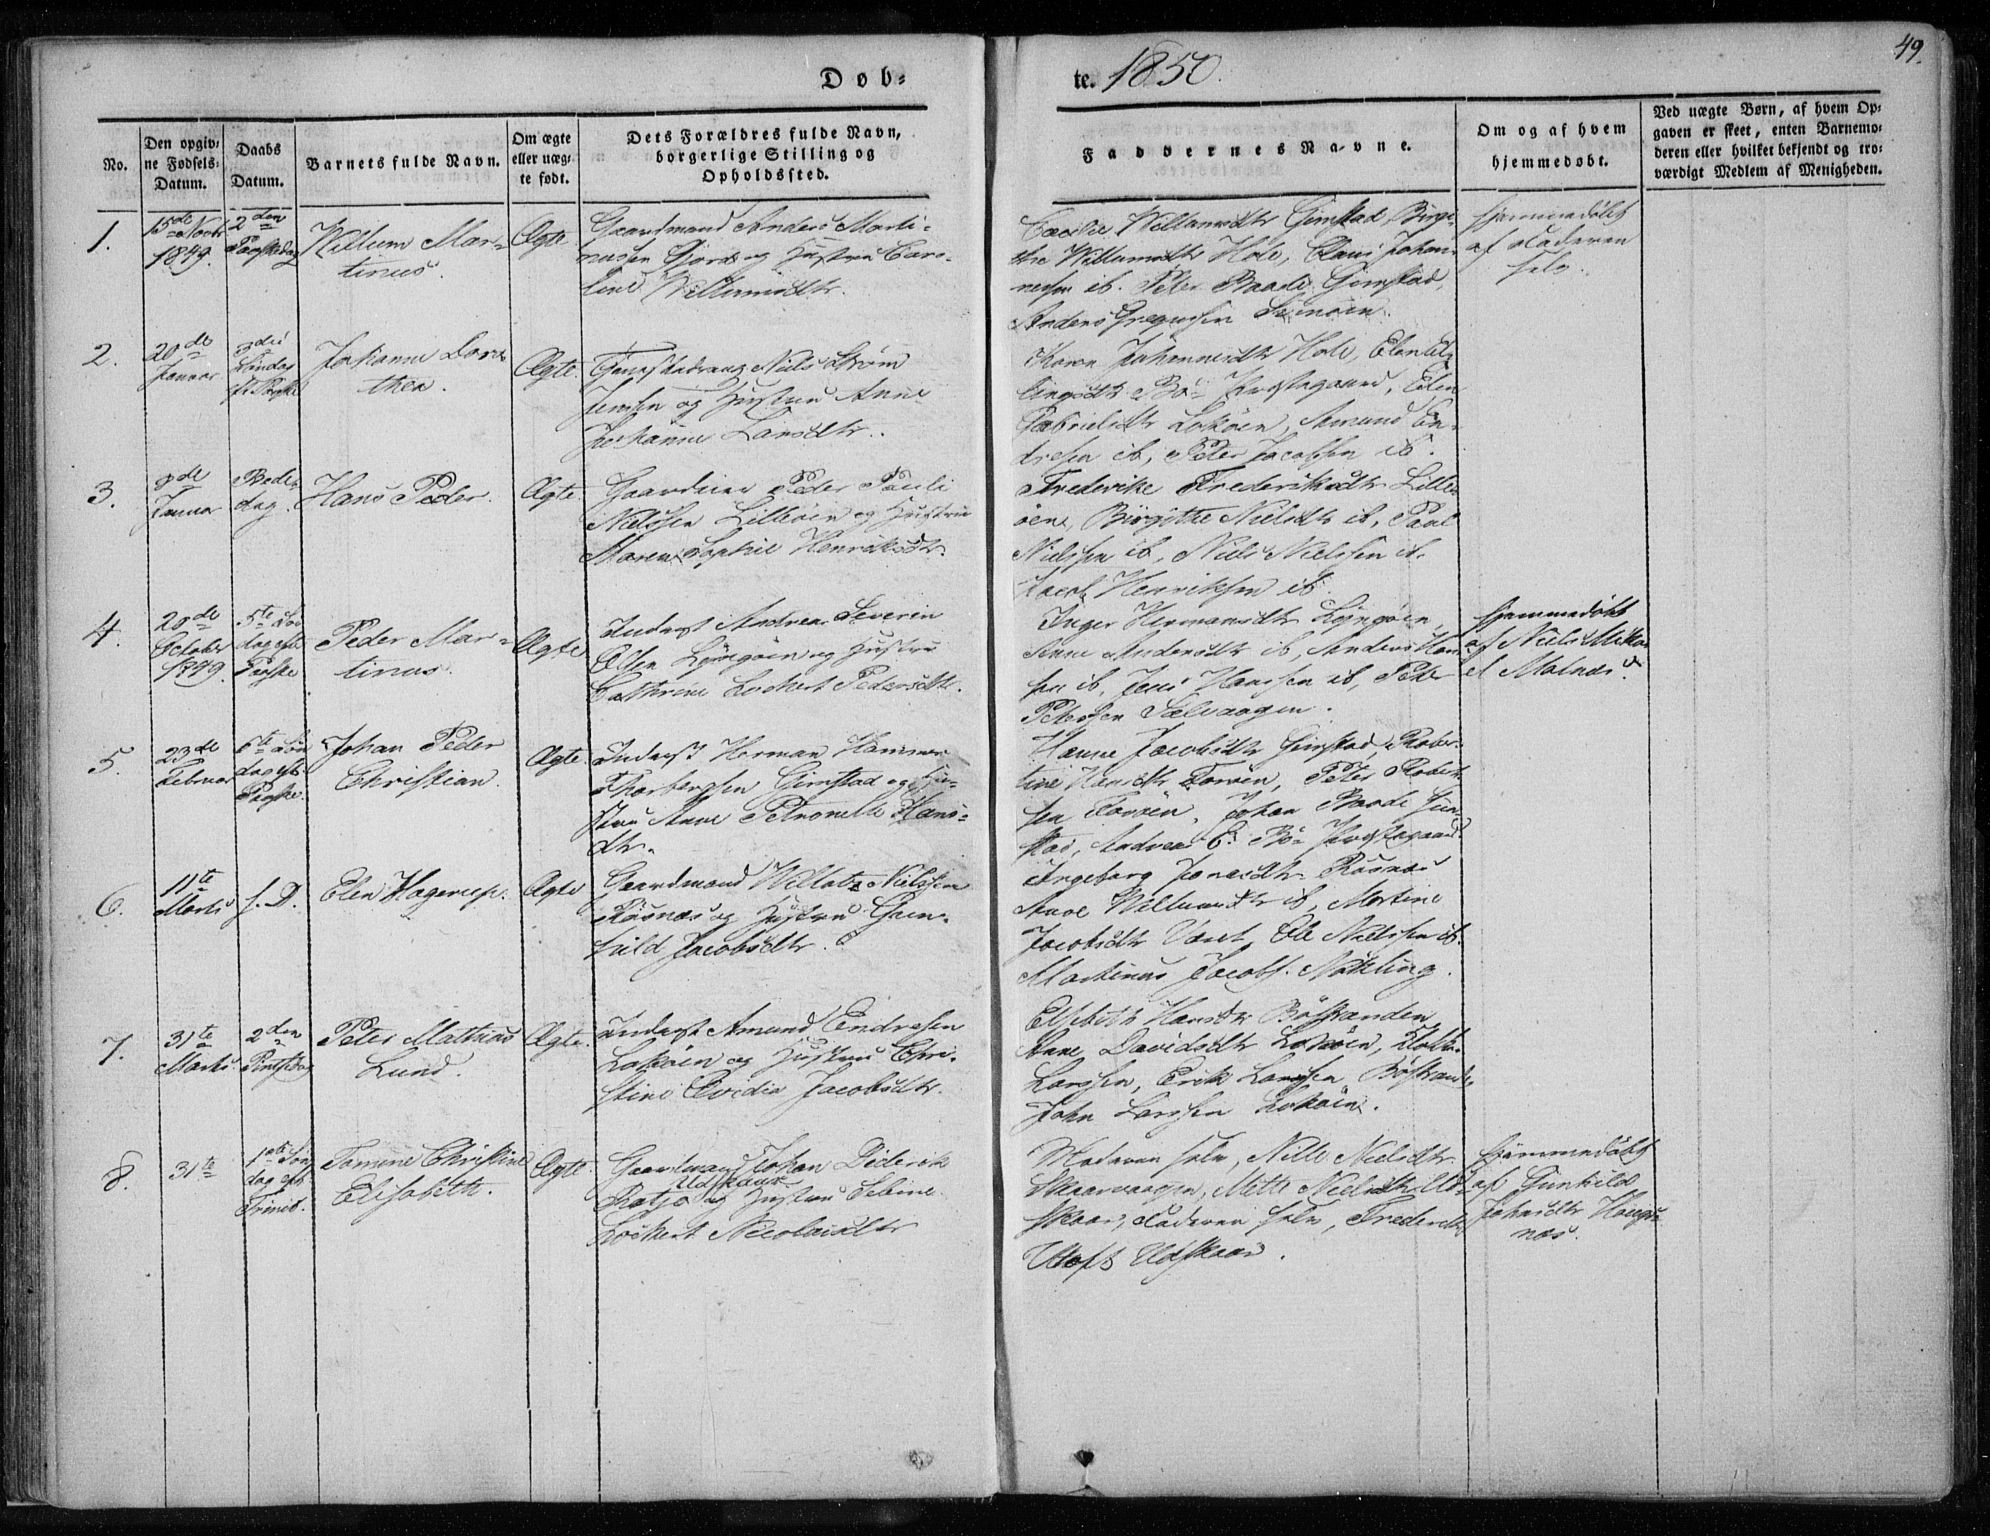 Døb-
te. 1850.
49.
No.
Den opgiv-
ne Fødsels-
Datum.
Daabs
Datum.
Barnets fulde Navn.
Om ægte
eller uæg-
te født.
Dets Forældres fulde Navn,
borgerlige Stilling og
Opholdssted.
Faddernes Navne.
Om og af hvem
hjemmedøbt.
Ved uægte Børn, af hvem Op-
gaven er skeet, enten Barnemo-
deren eller hvilket bekjendt og tro-
værdigt Medlem af Menigheden.
1.
15de Novbr
1849.
2den
Paaskedag
Willum Mar-
tinus.
Ægte
Gaardmand Anders Marti-
nusen Fjord og Hustru Caro-
line Willumsdtr.
Cæcilie Willumsdtr Gimstad, Birgi-
the Willumsdtr Hole, Claus Johan-
nesen ib. Peter Baade Gimstad,
Anders Gregusen
hjemmedøbt
af Faderen
selv.
2.
20de
Januar
3die
Søndag
eft. Paaske
Johanne Doro-
thea.
Ægte.
Niels Strøm
Jensen og Hustru Anne
Johanne Larsdtr.
Karen Johannesdtr Hole, Elen El-
lingsdtr Bø Præstegaard, Elen
Gabrielsdtr Lokøen, Amund En-
dresen ib, Peter Jacobsen ib.
3.
8de
Januar
Bede-
dag.
Hans Peder.
Ægte.
Gaardmand Peder Pauli
Nielssen Lilleøen og Hustru
Maren Sophie Henriksdtr.
Frederike Frederiksdtr Lille-
øen, Birgithe Nielsdtr ib, Paul
Nielssen ib, Niels Nielssen ib.
Jacob Henriksen ib.
4.
20de
October
1849
5te Søn-
dag eft.
Paaske
Peder Mar-
tinus.
Ægte
Inderst Andreas Severin
Olsen Lyngøen og Hustru
Cathrine Lockert Pedersdtr.
Inger Hermansdtr Lyngøen,
Anne Andersdtr ib, Anders Han-
sen ib, Jens Hanssen ib, Peter
Petersen Selvaagen.
hjemmedøbt
af Niels Mikal
Malnæs.
5.
23de
Februar
6te Søn
dag eft.
Paaske.
Johan Peder
Christian.
Ægte.
Inderst Herman Hammer
Thorbergsen Gimstad og Hu-
stru Anne Petronelle Hans-
dtr.
Hanne Jacobsdtr Gimstad, Rober-
tine Hansdtr Forøen, Peter Robert-
sen Forøen, Johan Baade Gim-
stad, Andreas C. Bø Præstegaard.
6.
11te
Marts
s. D.
Elen Hagerup.
Ægte
Gaardmand Willats Nielssen
Røsnæs og Hustru Gun-
hild Jacobsdtr.
Ingeborg Jonasdtr Røsnæs
Anne Willumsdtr ib, Martine
Jacobsdtr Været, Ole Nielssen ib.
Martinus Jacobs. Nøkling.
7.
31te
Marts.
2den
Pintsedag
Peter Mathias
Lund.
Ægte.
Inderst Amund Endresen
Lokøen og Hustru Chri-
stine Ovidia Jacobsdtr.
Elsebeth Hansdtr Bøstranden
Anne Davidsdtr Lokøen,
Larssen, Erik Larssen Bøstrand.
John Larssen Lokøen.
8.
31te
1ste Søn
dag eft.
Trinit.
Tomine Christine
Elisabeth.
Ægte.
Gaardmand Johan Diderik
Udskaar
Ratjo og Hustru Sebine
Lockert Nicolaisdtr
Moderen selv, Nille Nielsdtr
Skaarvaagen, Mette Nielsdtr Ud-
skaar, Faderen selv, Frederik
Udskaar.
hjemmedøbt
af Gunhild
Johnsdtr Haugs-
næs.